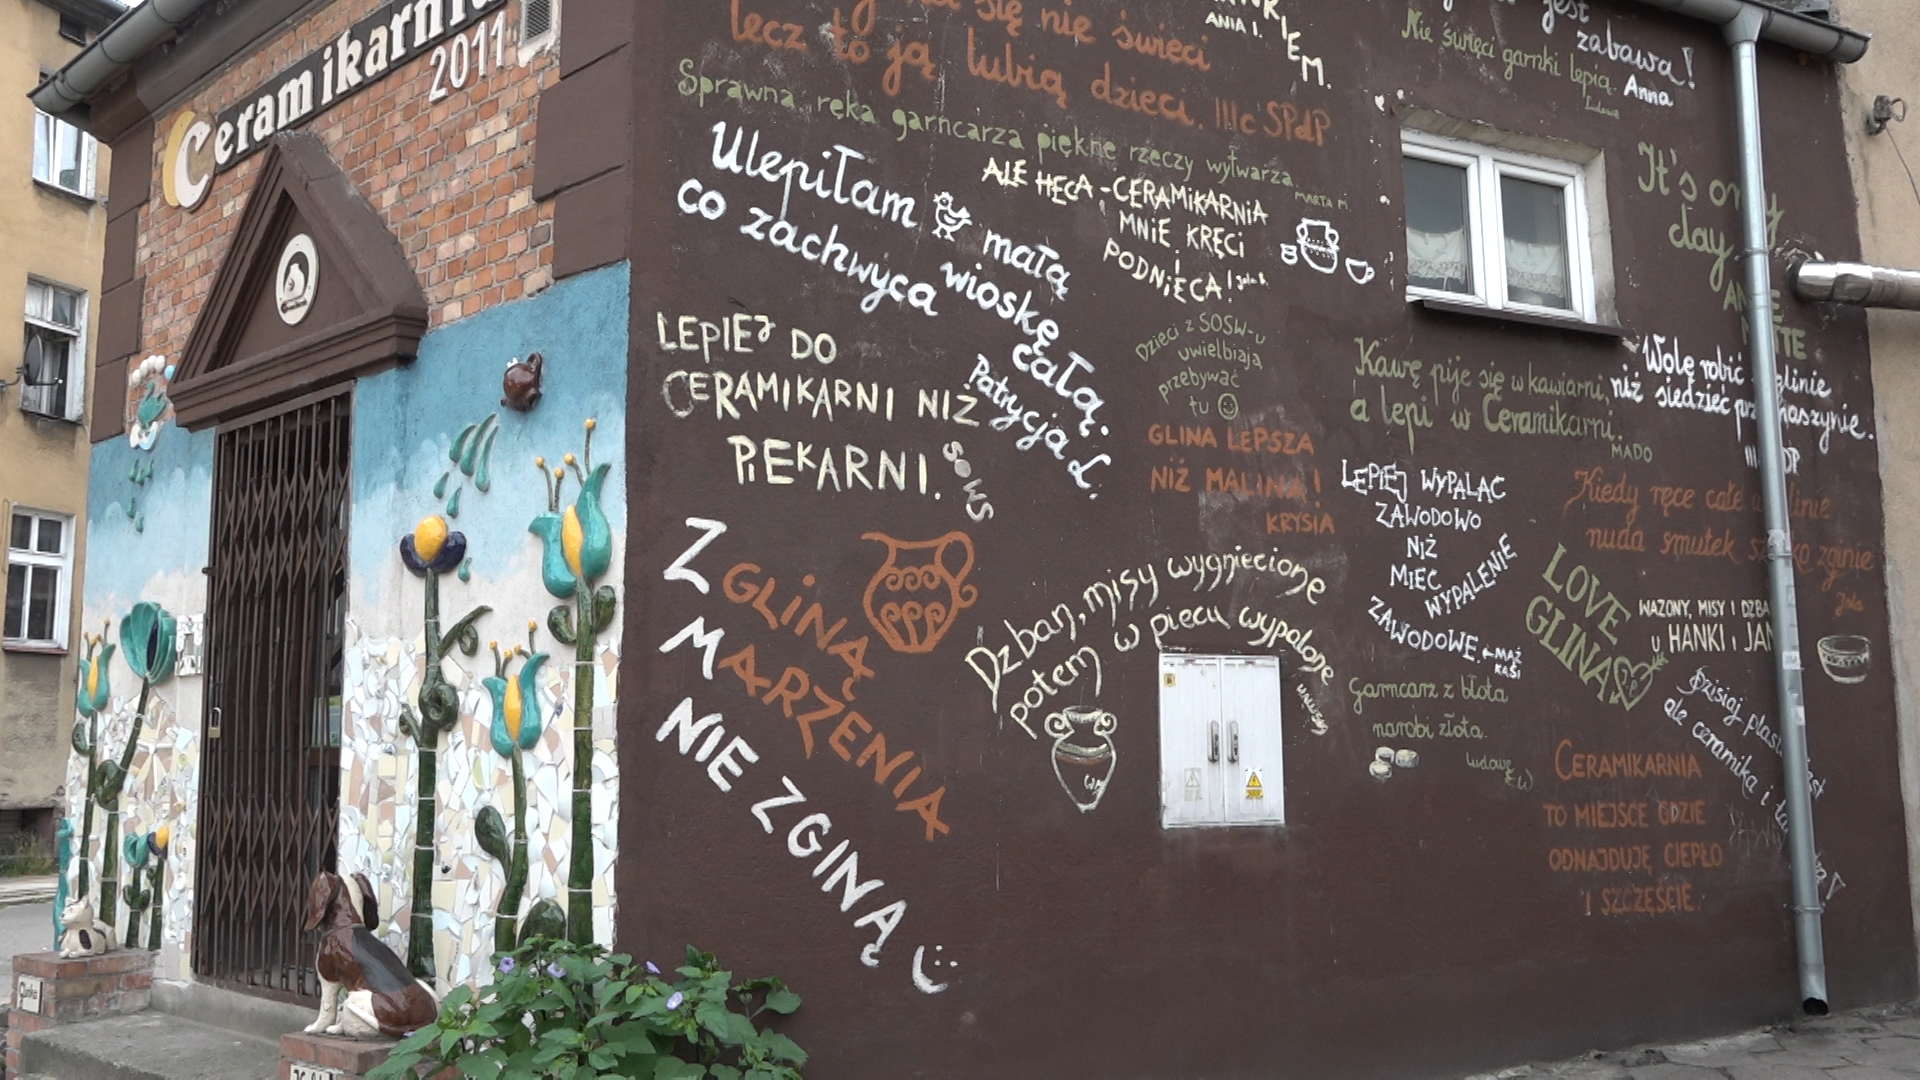 Ceramikarnia
2011
się nie święci
lecz to ją lubią dzieci. IIIc SPdP
ANIA I.
IEM.
jest
zabawa!
Anna
Nie święci garnki lepią.
Ludowe
Sprawna ręka garncarza piękne rzeczy wytwarza.
MARTA M.
Ulepiłam małą wioskę całą,
co zachwyca
Patrycja L.
ALE HECA - CERAMIKARNIA
MNIE KRĘCI
I
PODNIECA!
It's
day
LEPIEJ DO
CERAMIKARNI NIŻ
PIEKARNI.
SOWS
Dzieci z SOSW-u
uwielbiają
przebywać
tu
GLINA LEPSZA
NIŻ MALINA!
KRYSIA
Kawę pije się w kawiarni,
a lepi w Ceramikarni.
MADO
Wolę robić glinie
niż siedzieć maszynie.
LEPIEJ WYPALAC
ZAWODOWO
NIŻ
MIEC
WYPALENIE
ZAWODOWE.
MĄŻ
KASI
Kiedy ręce całe w glinie
nuda smutek zginie
Jola
Z GLINĄ
MARZENIA
NIE ZGINĄ
Dzban, misy wygniecione
potem w piecu wypalone
LOVE
GLINA
WAZONY, MISY I DZBA
U HANKI I JAN
Garncarz z błota
narobi złota.
ludowe
Dzisiaj
ale ceramika i
CERAMIKARNIA
TO MIEJSCE GDZIE
ODNAJDUJĘ CIEPŁO
I SZCZĘŚCIE.